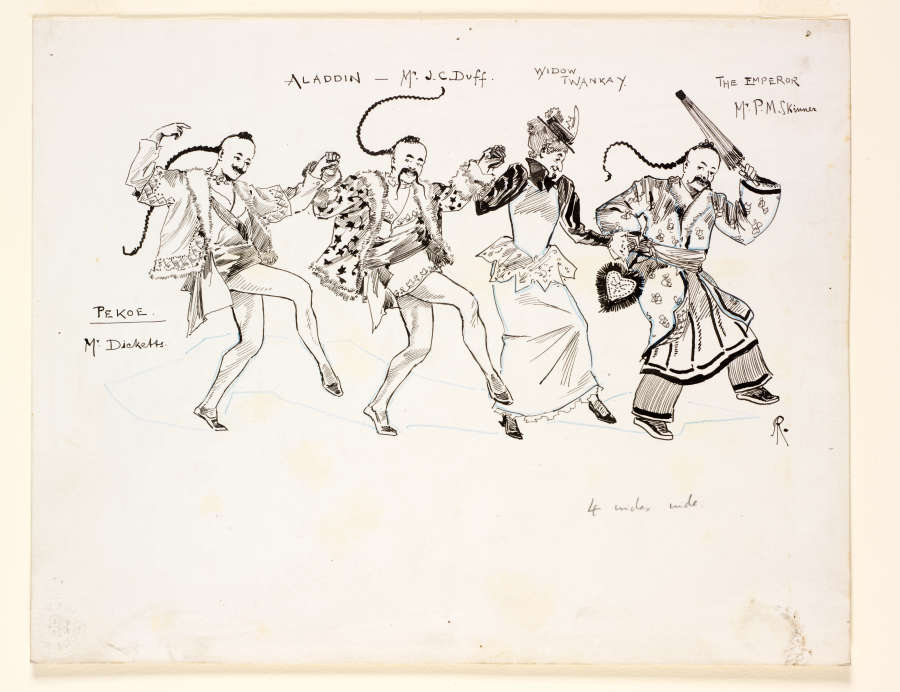 ALADDIN — Mr. J.C. Duff.
WIDOW
TWANKAY.
THE EMPEROR
Mr. P.M. Skinner
PEKOE.
Mr. Dicketts.
R.
4 inches wide.